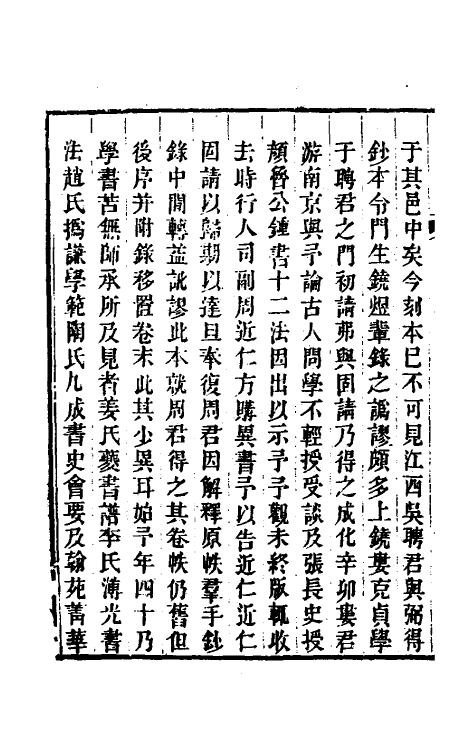 于其邑中矣今刻本已不可見江西吳聘君與弼得
鈔本令門生鏡煜輩錄之譌謬頗多上饒婁克貞學
于聘君之門初請弗與固請乃得之成化辛卯婁君
游南京與予論古人問學不輕授受談及張長史授
顏魯公鍾書十二法因出以示予予觀未終版輒收
去時行人司副周近仁方購異書予以告近仁近仁
因請以歸期以達旦奉復周君因解釋原帙羣手鈔
錄中間轉益訛謬此本就周君得之其卷帙仍舊但
後序并附錄移置卷末此其少異耳始予年四十乃
學書苦無師承所及見者姜氏夔書譜李氏溥光書
法趙氏撝謙學範陶氏九成書史會要及翰苑菁華